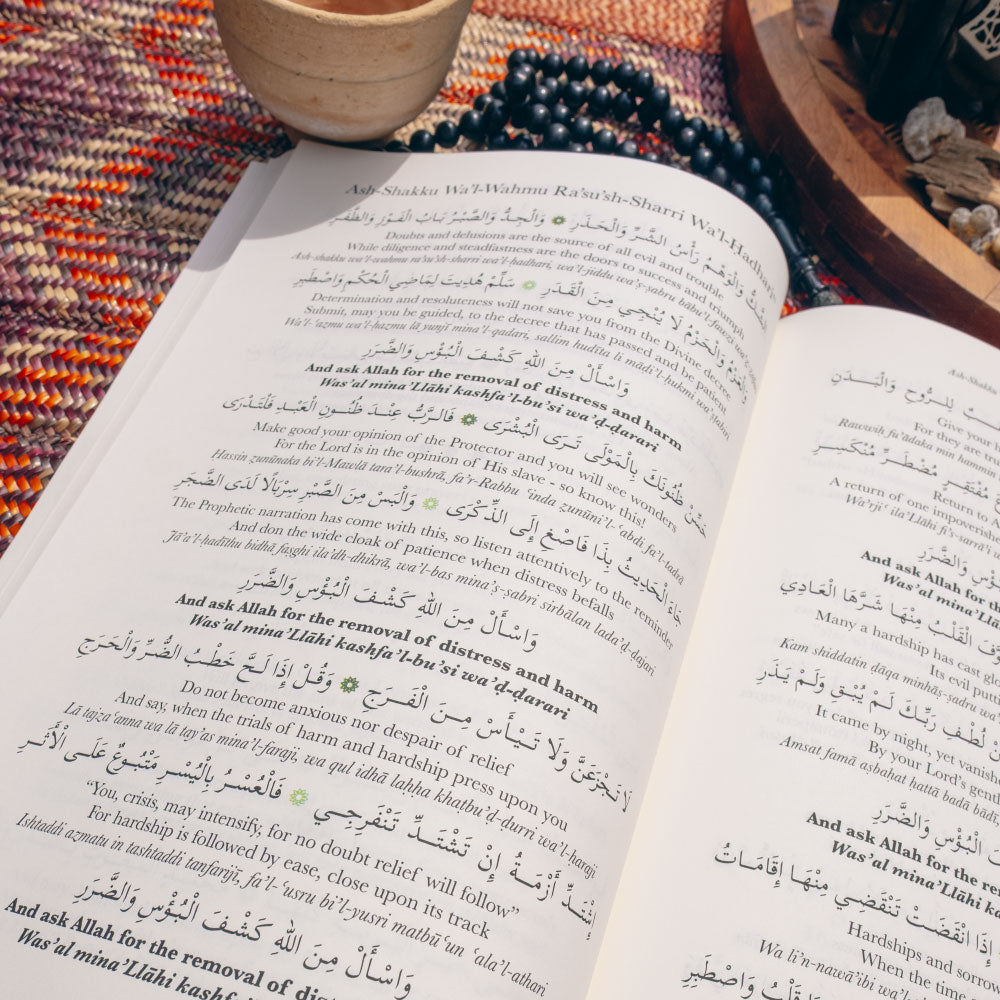 Ash-Shakku Wa'l-Wahmu Ra'su'sh-Sharri Wa'l-Ḥadhari
الشَّكُّ وَالْوَهْمُ رَأْسُ الشَّرِّ وَالْحَذَرِ وَالْجِدُّ وَالصَّبْرُ بَابُ الْفَوْزِ وَالظَّفَرِ
Doubts and delusions are the source of all evil and trouble
While diligence and steadfastness are the doors to success and triumph
Ash-shakku wa'l-wahmu ra'su'sh-sharri wa'l-ḥadhari, wa'l-jiddu wa'ṣ-ṣabru bābu'l-fawzi
وَالْعَزْمُ وَالْحَزْمُ لَا يُنْجِي مِنَ الْقَدَرِ سَلِّمْ هُدِيتَ لِمَاضِي الْحُكْمِ وَاصْطَبِرِ
Determination and resoluteness will not save you from the Divine decree
Submit, may you be guided, to the decree that has passed and be patient
Wa'l-'azmu wa'l-ḥazmu lā yunjī mina'l-qadari, sallim hudīta li māḍi'l-ḥukmi wa'ṣṭabiri
وَاسْأَلْ مِنَ اللهِ كَشْفَ الْبُؤْسِ وَالضَّرَرِ
And ask Allah for the removal of distress and harm
Was'al mina'Llāhi kashfa'l-bu'si wa'ḍ-ḍarari
حَسِّنْ ظُنُونَكَ بِالْمَوْلَى تَرَى الْبُشْرَى فَالرَّبُّ عِنْدَ ظُنُونِ الْعَبْدِ فَلْتَدْرَى
Make good your opinion of the Protector and you will see wonders
For the Lord is in the opinion of His slave - so know this!
Ḥassin ẓunūnaka bi'l-Mawlā tara'l-bushrā, fa'r-Rabbu 'inda ẓunūni'l-'abdi fa'l-tadrā
جَاءَ الْحَدِيثُ بِذَا فَاصْغِ إِلَى الذِّكْرَى وَالْبَسْ مِنَ الصَّبْرِ سِرْبَالًا لَدَى الضَّجَرِ
The Prophetic narration has come with this, so listen attentively to the reminder
And don the wide cloak of patience when distress befalls
Jā'a'l-ḥadīthu bidhā faṣghi ila'dh-dhikrā, wa'l-bas mina'ṣ-ṣabri sirbālan lada'ḍ-ḍajari
وَاسْأَلْ مِنَ اللهِ كَشْفَ الْبُؤْسِ وَالضَّرَرِ
And ask Allah for the removal of distress and harm
Was'al mina'Llāhi kashfa'l-bu'si wa'ḍ-ḍarari
لَا تَجْزَعَنَّ وَلَا تَيْأَسْ مِنَ الْفَرَجِ وَقُلْ إِذَا لَحَّ خَطْبُ الضُّرِّ وَالْحَرَجِ
Do not become anxious nor despair of relief
And say, when the trials of harm and hardship press upon you
Lā tajza'anna wa lā tay'as mina'l-faraji, wa qul idhā laḥḥa khaṭbu'ḍ-ḍurri wa'l-ḥaraji
اِشْتَدِّ أَزْمَةُ إِنْ تَشْتَدِّ تَنْفَرِجِي فَالْعُسْرُ بِالْيُسْرِ مَتْبُوعٌ عَلَى الْأَثَرِ
“You, crisis, may intensify, for no doubt relief will follow”
For hardship is followed by ease, close upon its track
Ishtaddi azmatu in tashtaddi tanfarijī, fa'l-'usru bi'l-yusri matbū'un 'ala'l-athari
وَاسْأَلْ مِنَ اللهِ كَشْفَ الْبُؤْسِ وَالضَّرَرِ
And ask Allah for the removal of distress
Was'al mina'Llāhi
Ash-Shakku
لِلرُّوحِ وَالْبَدَنِ
Give your
For they are
Rawwiḥ fu'ādaka min hammin
مُفْتَقِرٍ مُضْطَرٍّ مُنْكَسِرٍ
Return to
A return of one impoverished
Wa'rji' ila'Llāhi
الْبُؤْسِ وَالضَّرَرِ
And ask Allah for the
Was'al mina'Llāhi
الْقَلْبُ مِنْهَا شَرَّهَا الْعَادِي
Many a hardship has cast
Its evil
Kam shiddatin ḍāqa minhāṣ-ṣadru
لُطْفِ رَبِّكَ لَمْ يُبْقِ وَلَمْ يَذَرِ
It came by night, yet
By your Lord's
Amsat famā aṣbaḥat ḥattā badā bādī,
الْبُؤْسِ وَالضَّرَرِ
And ask Allah for the
Was'al mina'Llāhi
إِذَا انْقَضَتْ تَنْقَضِي مِنْهَا إِقَامَاتُ
Hardships and
When the time
Wa li'n-nawā'ibi
قَلْبُ وَاصْطَبِرِ